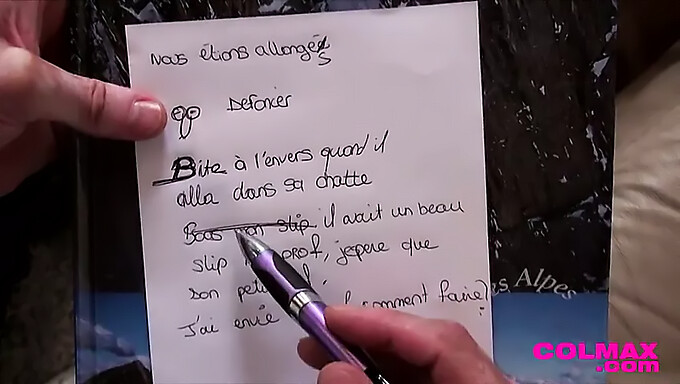 Nous étions allongés
Defoncer
Bite à l'envers quand il
alla dans sa chatte
il avait un beau
slip prof, j'epere que
son peti
J'ai envie comment faire?
es Alpes
COLMAX
.com